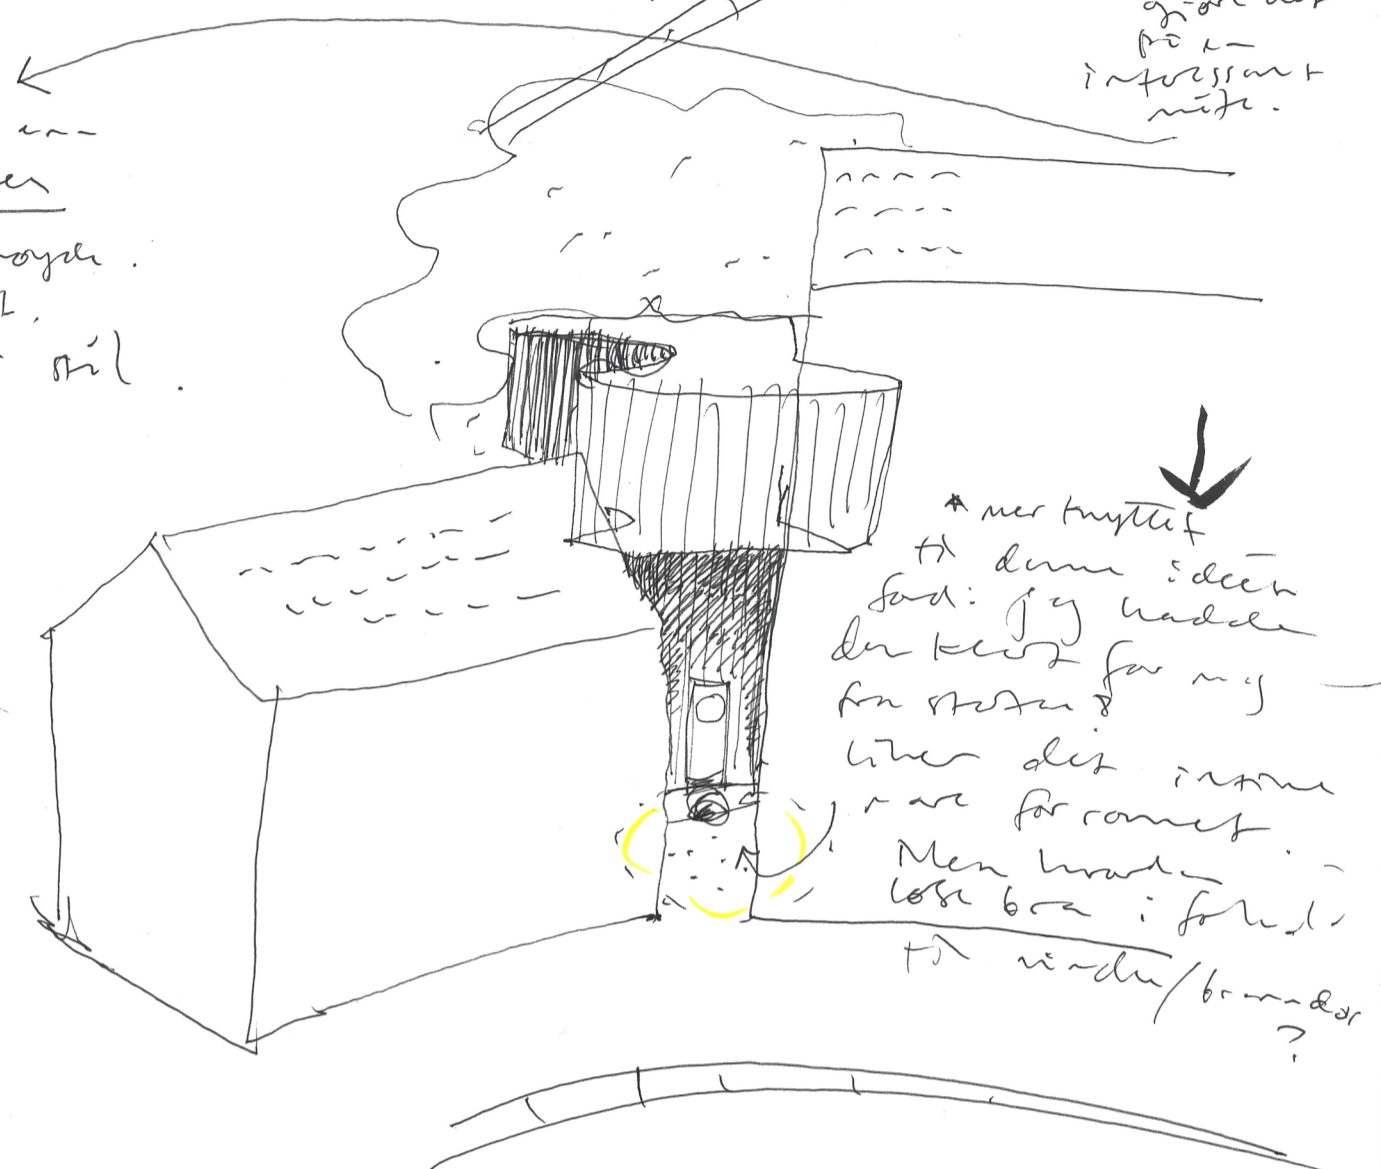 på en
interessant
måte.
stål.
* mer knyttet
til denne idéen
ford: jeg hadde
den klart for meg
fra starten &
liker det intime
rare forrommet.
Men hvordan
løse bra i forhold
til vindu/branndør
?